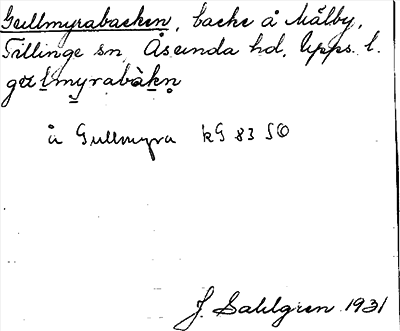 Gullmyrabacken, backe å Målby,
Tillinge sn, Åsunda hd, Upps. l.
å Gullmyra kG 83 SO
J. Sahlgren 1931